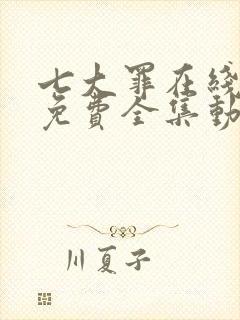 七大罪在线
免费全集动
川夏子